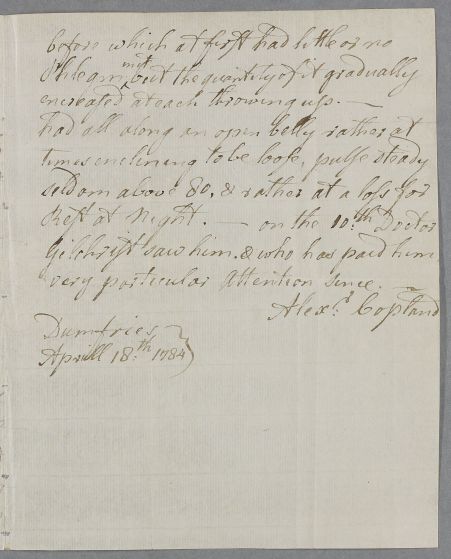 before which at first had little or no
Phlegm in it, but the quantity of it gradually
encreased at each throwing up. —
had all along an open belly rather at
times enclining to be loose, pulse steady
seldom above 80, & rather at a loss for
Rest at Night. — on the 10th Doctor
Gilchrist saw him. & who has paid him
very particular Attention since. —
Alexr. Copland
Dumfries
Aprill 18th 1784